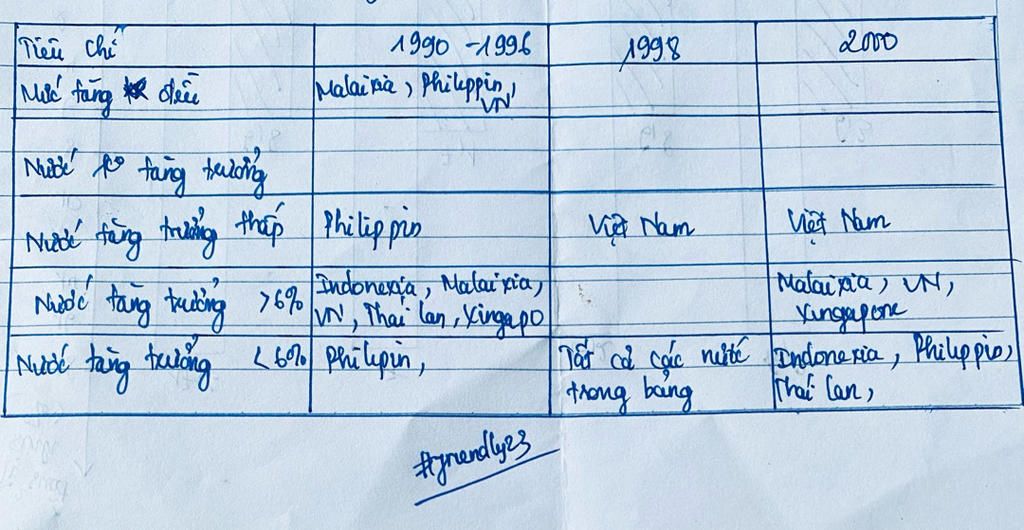 Tiêu chí 1990 - 1996 1998 2000
Mức tăng đều Malaixia, Philippin,
VN
Nước ko tăng trưởng
Nước tăng trưởng thấp Philippin Việt Nam Việt Nam
Nước tăng trưởng >6% Indonexia, Malaixia,
VN, Thái lan, Xingapo
Malaixia, VN,
Xingapore
Nước tăng trưởng <6% Philipin,
Tất cả các nước
trong bảng
Indonexia, Philippin,
Thái lan,